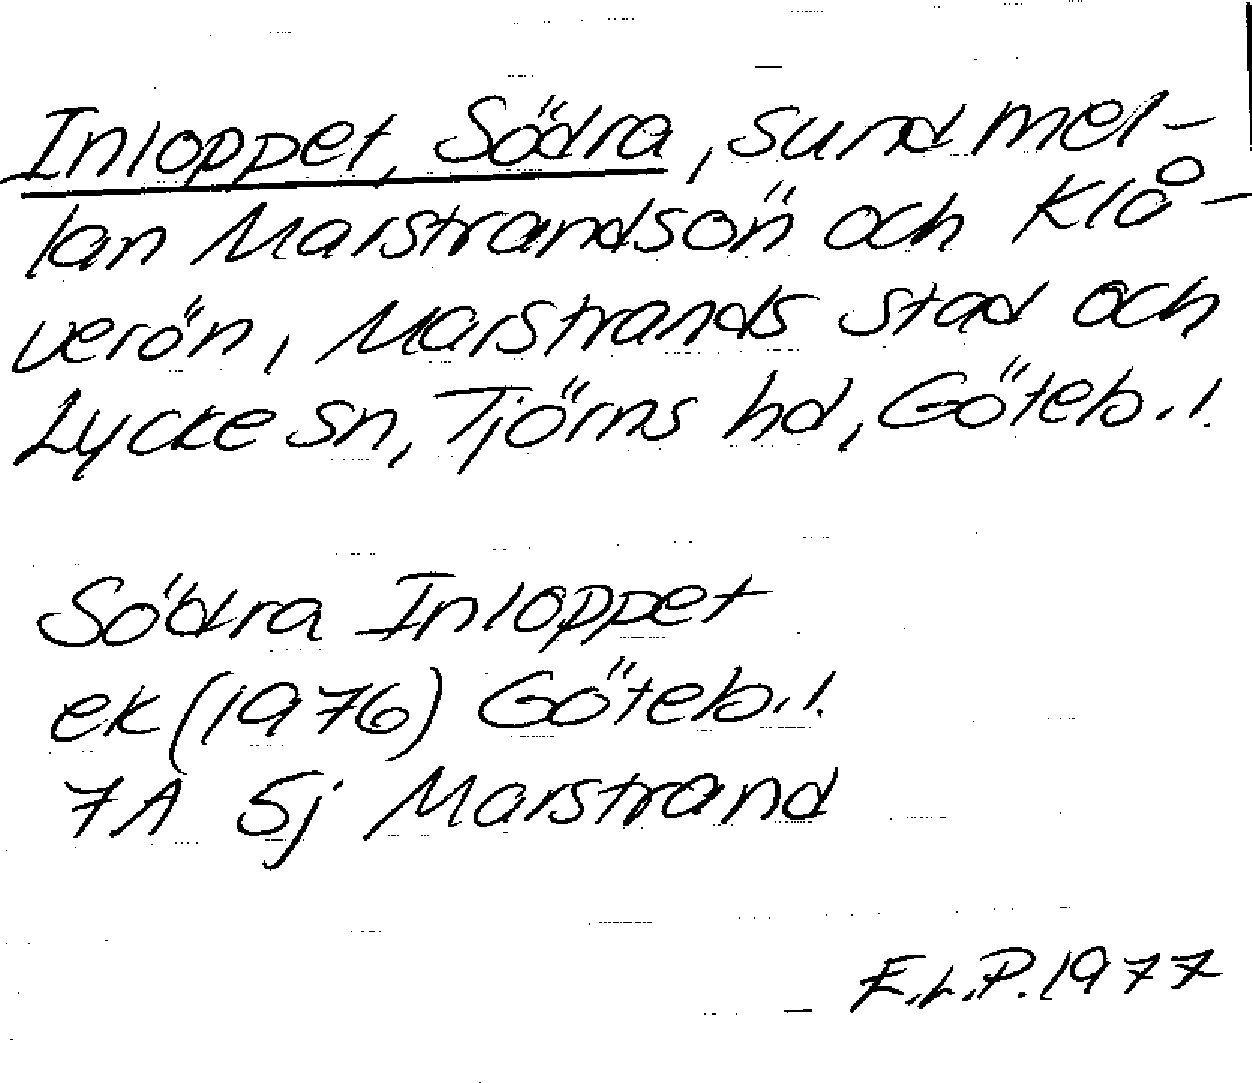 Inloppet, Södra, sund mel-
lan Marstrandsön och Klå-
verön, Marstrands stad och
Lycke sn, Tjörns hd, Göteb. l.
Södra Inloppet
ek (1976) Göteb. l.
7A 5j Marstrand
F.L.P. 1977